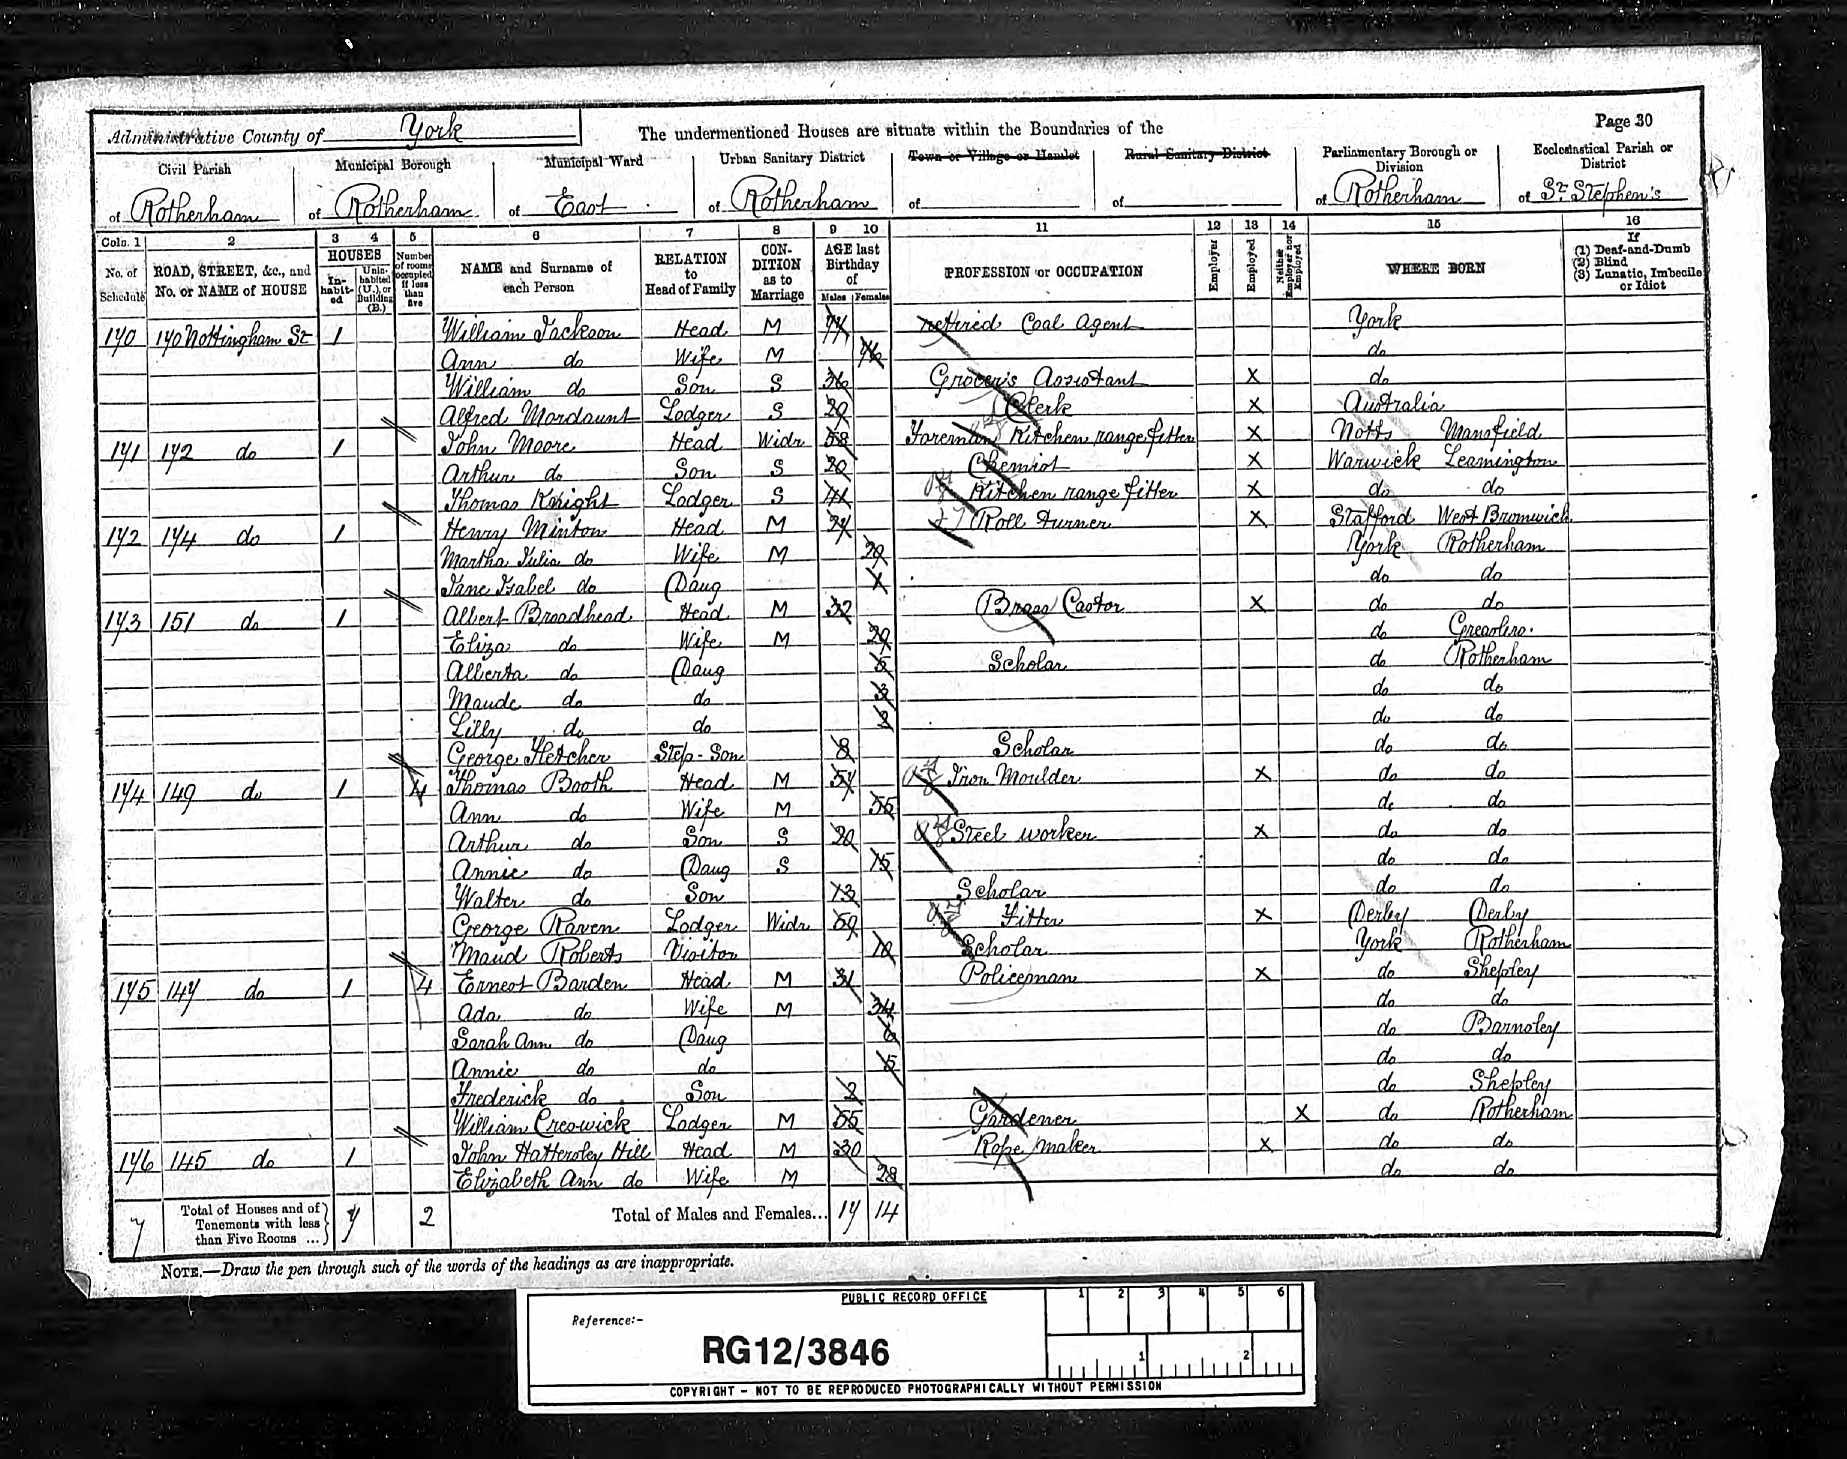 Administrative County of York The undermentioned Houses are situate within the Boundaries of the Page 30
Civil Parish Municipal Borough Municipal Ward Urban Sanitary District Town or Village or Hamlet Rural Sanitary District Parliamentary Borough or Division Ecclesiastical Parish or District
of Rotherham of Rotherham of East of Rotherham of of of Rotherham of St. Stephen's
Cols. 1 2 3 4 5 6 7 8 9 10 11 12 13 14 15 16
No. of Schedule ROAD, STREET, &c., and No. or NAME of HOUSE HOUSES In-habit-ed Unin-habited (U.), or Building (B.) Number of rooms occupied if less than five NAME and Surname of each Person RELATION to Head of Family CON-DITION as to Marriage AGE last Birthday of Males Females PROFESSION or OCCUPATION Employer Employed Neither Employer nor Employed WHERE BORN If (1) Deaf-and-Dumb (2) Blind (3) Lunatic, Imbecile or Idiot
170 170 Nottingham St 1 William Jackson Head M 74 retired Coal Agent York
Ann do Wife M 76 do
William do Son S 36 Grocer's Assistant X do
Alfred Mordaunt Lodger S 29 Clerk X Australia
171 172 do 1 John Moore Head Widr 58 Foreman Kitchen range fitter X Notts Mansfield
Arthur do Son S 20 Chemist X Warwick Leamington
Thomas Knight Lodger S 41 Kitchen range fitter X do do
172 174 do 1 Henry Minton Head M 27 Roll turner X Stafford West Bromwich
Martha Julia do Wife M 29 York Rotherham
Jane Isabel do Daug 1 do do
173 151 do 1 Albert Broadhead Head M 32 Brass Castor X do do
Eliza do Wife M 29 do Greasbro.
Alberta do Daug 5 Scholar do Rotherham
Maude do do 3 do do
Lilly do do 2 do do
George Fletcher Step-Son 8 Scholar do do
174 149 do 1 4 Thomas Booth Head M 57 Iron Moulder X do do
Ann do Wife M 55 do do
Arthur do Son S 20 Steel worker X do do
Annie do Daug S 15 do do
Walter do Son 13 Scholar do do
George Raven Lodger Widr 59 Fitter X Derby Derby
Maud Roberts Visitor 10 Scholar York Rotherham
175 147 do 1 4 Ernest Barden Head M 31 Policeman X do Shepley
Ada do Wife M 34 do do
Sarah Ann do Daug 6 do Barnsley
Annie do do 5 do do
Frederick do Son 2 do Shepley
William Creswick Lodger M 55 Gardener X do Rotherham
176 145 do 1 John Hattersley Hill Head M 30 Rope maker X do do
Elizabeth Ann do Wife M 28 do do
7 Total of Houses and of Tenements with less than Five Rooms ... 7 2 Total of Males and Females... 17 14
NOTE.—Draw the pen through such of the words of the headings as are inappropriate.
PUBLIC RECORD OFFICE
Reference:-
RG12/3846
1 2 3 4 5 6
1 2
COPYRIGHT - NOT TO BE REPRODUCED PHOTOGRAPHICALLY WITHOUT PERMISSION